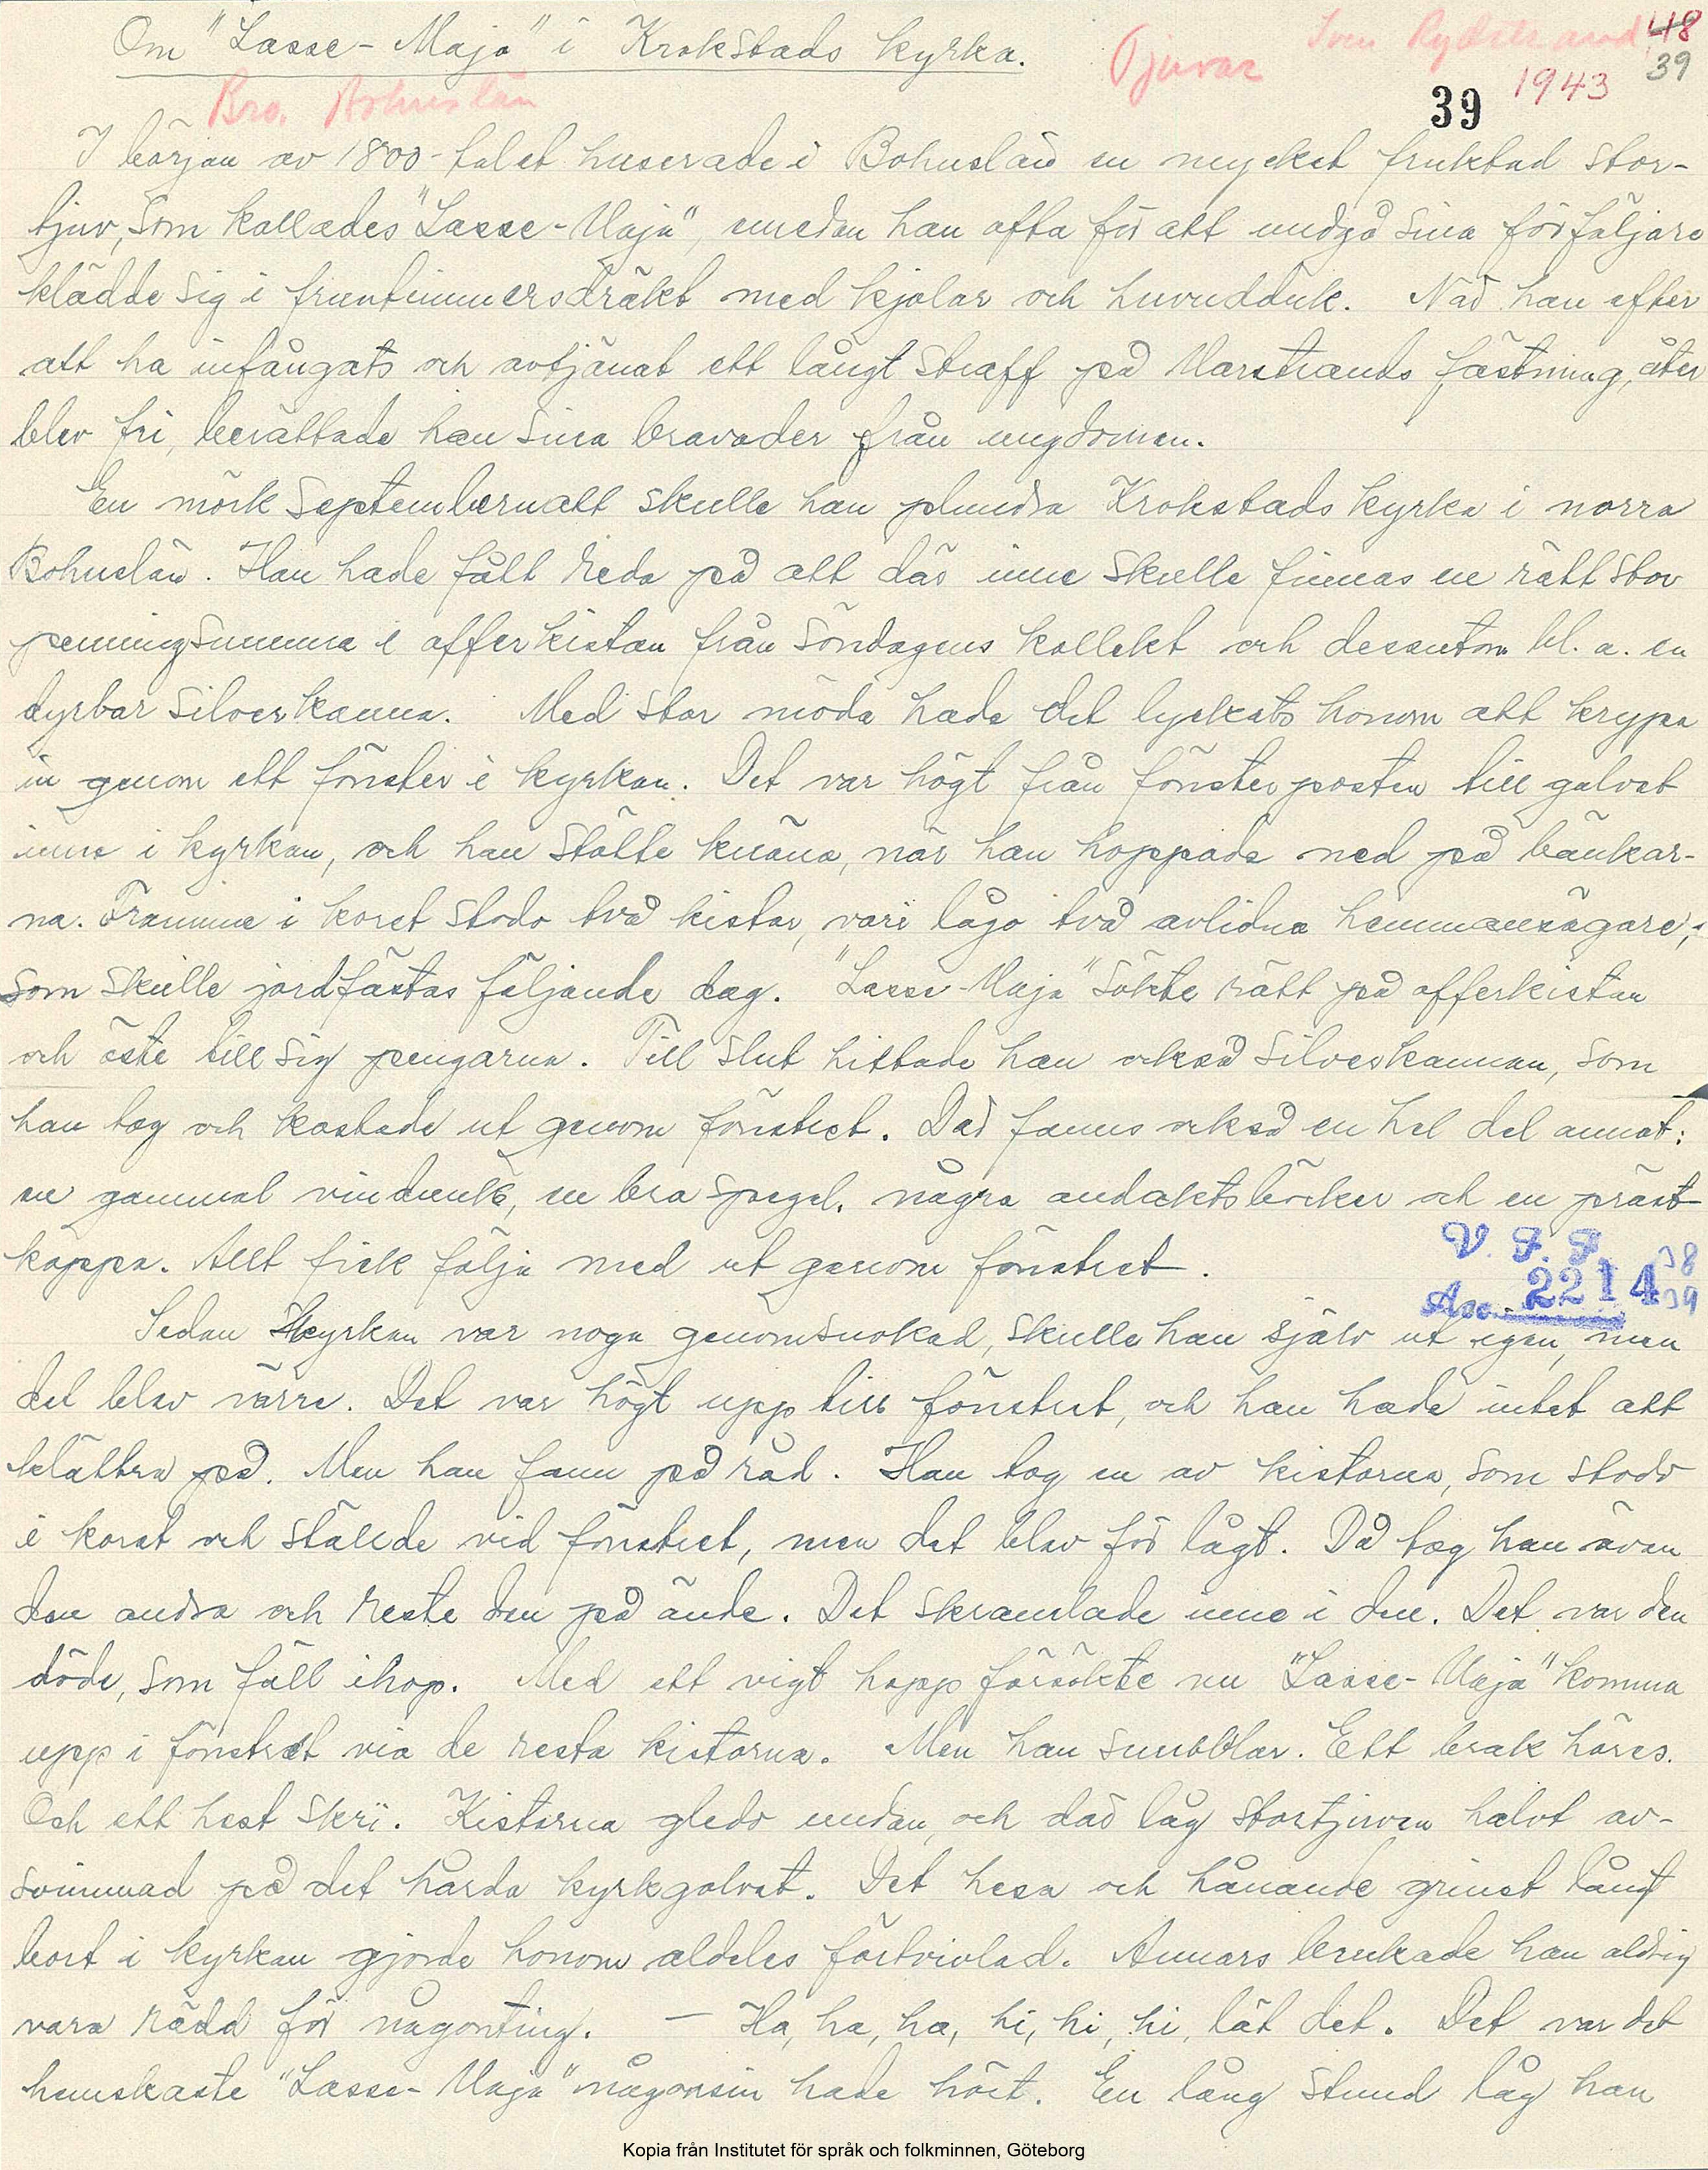 Om "Lasse-Maja" i Krokstads kyrka.
Tjuvar
Sven Rydstrand
48
39
1943
39
Bro, Bohuslän
I början av 1800-talet huserade i Bohuslän en mycket fruktad stor-
tjuv, som kallades "Lasse-Maja", emedan han ofta för att undgå sina förföljare
klädde sig i fruntimmersdräkt med kjolar och huvudduk. När han efter
att ha infångats och avtjänat ett långt straff på Marstrands fästning, åter
blev fri, berättade han sina bravader från ungdomen.
En mörk septembernatt skulle han plundra Krokstads kyrka i norra
Bohuslän. Han hade fått reda på att där inne skulle finnas en rätt stor
penningsumma i offerkistan från söndagens kollekt och dessutom bl. a. en
dyrbar silverkanna. Med stor möda hade det lyckats honom att krypa
in genom ett fönster i kyrkan. Det var högt från fönsterposten till golvet
inne i kyrkan, och han stötte knäna, när han hoppade ned på bänkar-
na. Framme i koret stodo två kistor, vari lågo två avlidna hemmansägare,
som skulle jordfästas följande dag. "Lasse-Maja" sökte rätt på offerkistan
och öste till sig pengarna. Till slut hittade han också silverkannan, som
han tog och kastade ut genom fönstret. Där fanns också en hel del annat:
en gammal vindunk, en bra spegel, några andaktsböcker och en präst-
kappa. Allt fick följa med ut genom fönstret.
V. F. F.
Acc. 2214
38
39
Sedan kyrkan var noga genomsnokad, skulle han själv ut igen, men
det blev värre. Det var högt upp till fönstret, och han hade intet att
klättra på. Men han fann på råd. Han tog en av kistorna, som stodo
i koret och ställde vid fönstret, men det blev för lågt. Då tog han även
den andra och reste den på ände. Det skramlade inne i den. Det var den
döde, som föll ihop. Med ett vigt hopp försökte nu "Lasse-Maja" komma
upp i fönstret via de resta kistorna. Men han snubblar. Ett brak höres.
Och ett hest skri. Kistorna gledo undan, och där låg stortjuven halvt av-
svimmad på det hårda kyrkgolvet. Det hesa och hånande grinet långt
bort i kyrkan gjorde honom alldeles förtvivlad. Annars brukade han aldrig
vara rädd för någonting. — Ha, ha, ha, hi, hi, hi, lät det. Det var det
hemskaste "Lasse-Maja" någonsin hade hört. En lång stund låg han
Kopia från Institutet för språk och folkminnen, Göteborg